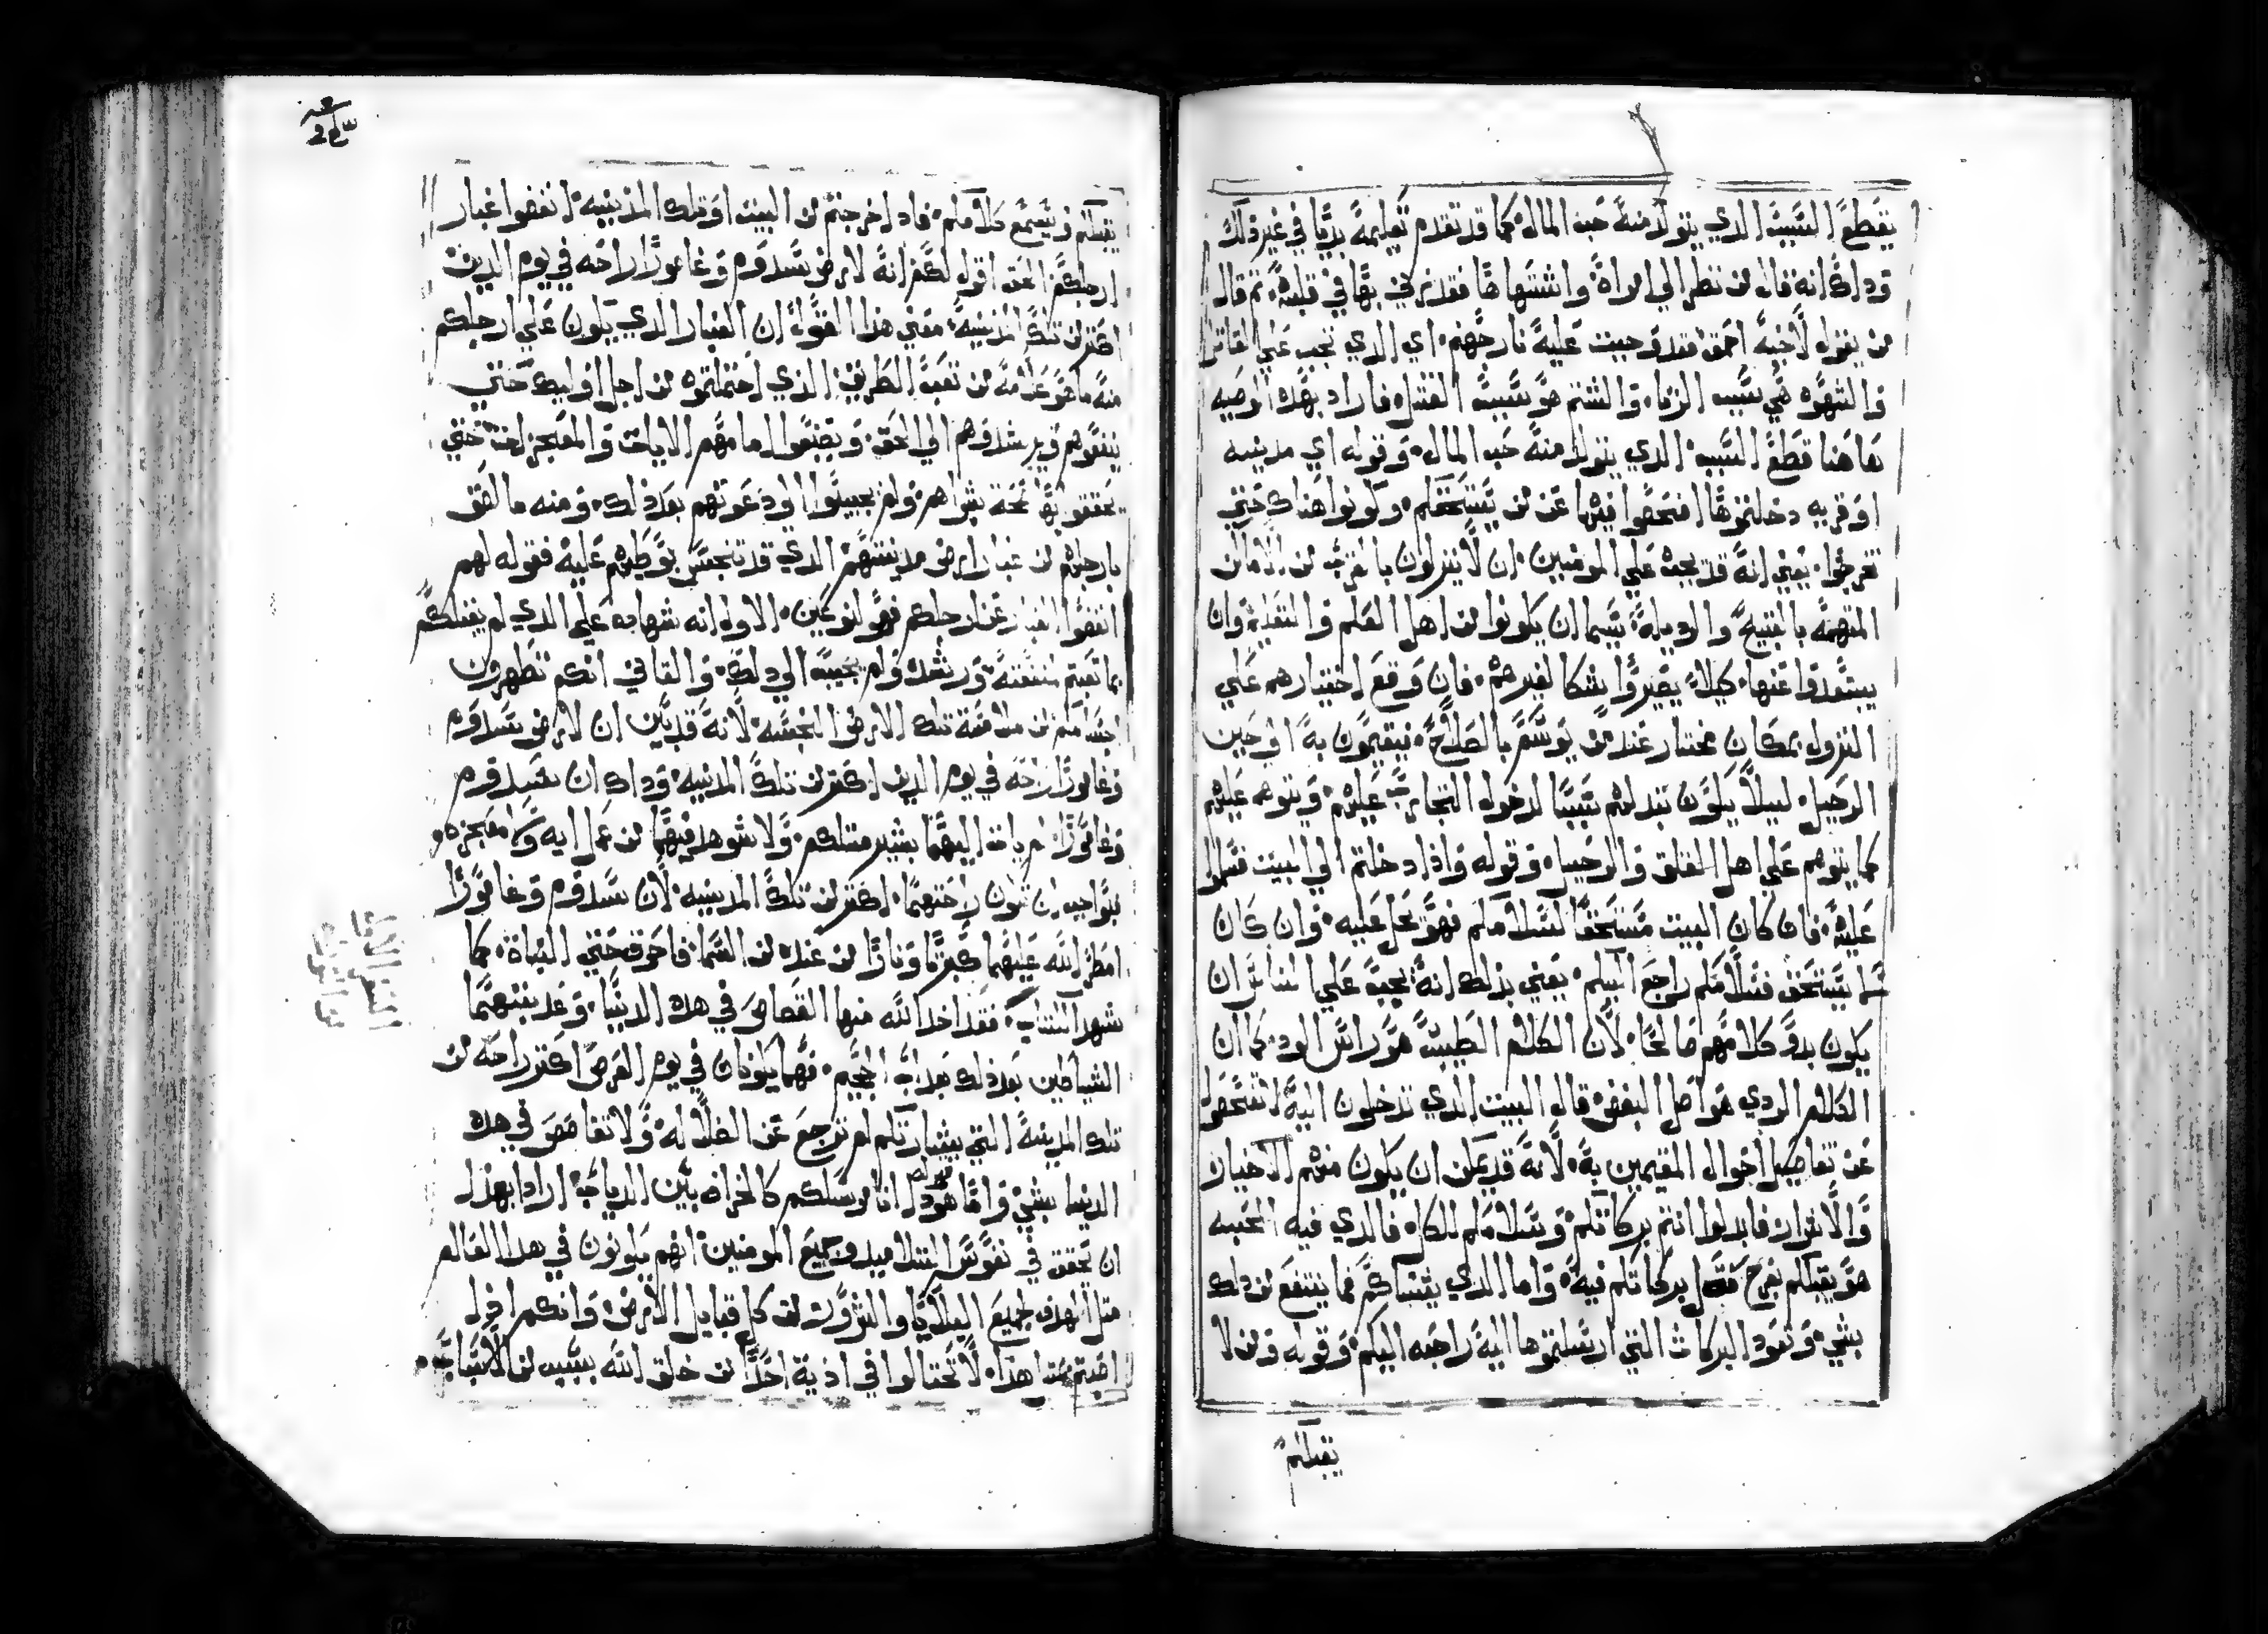 يقطع السبب الدي يتولد منه حب المال كما قد تقدم تعليمه بديا في غير ذلك
وداك انه قال من نظر الي امراة واشتهاها فقد زني بها في قلبه، ثم قال
من يقول لاخيه احمق فقد وجبت عليه نار جهنم، اي الدي تجب علي القاتل
والشهوه هي سبب الزنا، والشتم هو سبب القتل، فاراد بهده الوصيه
هاهنا قطع السبب الدي يتولد منه حب المال، وقوله اي مدينه
او قريه دخلتموها افحصوا فيها عن من يستحقكم، وكونوا هناك حتي
تخرجوا، يعني انه قد يجب علي المومنين ان لا ينزلون بالقرب من الاماكن
المتهمه بالقبيح والرديله، سيما ان يكونوا من اهل العلم والتعليم وان
يبتعدوا عنها، كيلا يصيروا شكا لغيرهم، فان وقع اختيارهم علي
النزول بمكان مختار عند من يوسم بالصلاح، فيقيمون به الي حين
الرحيل، ليلا يكون تبدلهم سببا لدخول التجارب عليهم، ويتوهم عليهم
كما يتوهم علي اهل القلق والرحيل، وقوله واذا دخلتم الي البيت فسلموا
عليه، فان كان البيت مستحقا لسلامكم فهو يحل عليه، وان كان
لا يستحق فسلامكم راجع اليكم، يعني بذلك انه يجب علي الناس ان
يكون بدو كلامهم صالحا، لان الكلام الطيب هو راس الود، كما ان
الكلام الردي هو اصل البغض، قال البيت الدي تدخلون اليه لا تفحصوا
عن تفاصيل احوال المقيمين به، لانه قد يمكن ان يكون منهم الاخيار
والاشرار، فابدلوا انتم بركاتكم وسلامكم للكل، فالدي فيه المحبه
هو يقبلكم بفرح بركاتكم فيه، واما الدي يشناكم فما ينتفع من دلك
بشي، وتعود البركات التي ارسلتموها اليه راجعه اليكم، وقوله ومن لا
يقبلكم
يقبلكم ويسمع كلامكم، فادا خرجتم من البيت او تلك المدينه، انفضوا غبار
ارجلكم، الحق اقول لكم انه لارض سدوم وغامورا راحه في يوم الدين
اكتر من تلك المدينه، معني هذا القول ان الغبار الدي يكون علي ارجلكم
منه ما هو علامه من تعب الطريق الذي احتملتموه من اجل اوليك حتي
ينفعوهم ويرشدوهم الي الحق، ويصنعوا امامهم الايات والمعجزات، حتي
يحققوا بها صحة بشراهم، ولم يجيبوا الي دعوتهم بعد ذلك، ومنه ما التصق
بارجلهم من غبار ارض مدينتهم الدي قد تنجس بوطيهم عليه فقوله لهم
انفضوا الغبار عن ارجلكم فهو لنوعين، الاول انه شهاده علي الدي لم يقبلكم
بما تعبتم لمنفعته ورشده ولم يجيب الي دلك، والتاني انكم تطهرون
اجسامكم من ملامسة تلك الارض النجسه، لانه قد بين ان لارض سدوم
وغامورا راحه في يوم الدين اكتر من تلك المدينه، وداك ان سدوم
وغامورا لم يات اليهما بشير مثلكم، ولا شوهد فيهما من عمل ايه ولا معجزه،
بواجب ان تكون راحتهما اكتر من تلك المدينه، لان سدوم وغامورا
امطر الله عليهما كبريتا ونارا من عنده من السما، فاحرق حتي النباة، كما
شهد الكتاب، فقد اخد الله منها القصاص في هده الدنيا، وعذبتهما
الشياطين بعد ذلك بعداب الجحيم، فهما يكونان في يوم العرض اكتر راحه من
تلك المدينه التي ببشارتكم لم ترجع عن الضلاله، ولا تقاصص في هده
الدنيا بشي، واما قوله هودا انا ارسلكم كالخراف بين الدياب، اراد بهذا
ان يحقق في نفوس التلاميد وجميع المومنين، انهم يكونون في هدا العالم
متل الهدف لجميع البلايا والشرور من كل قبايل الارض، وانكم اذا
اصبتم بمثل هذا، لا تحتالوا في اذية احدا من خلق الله بسبب من الاسباب،